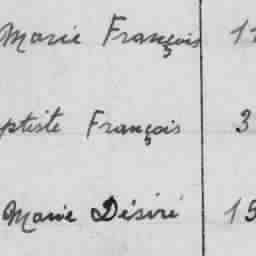 Marie François 11
ptiste François 3
Marie Désiré 15